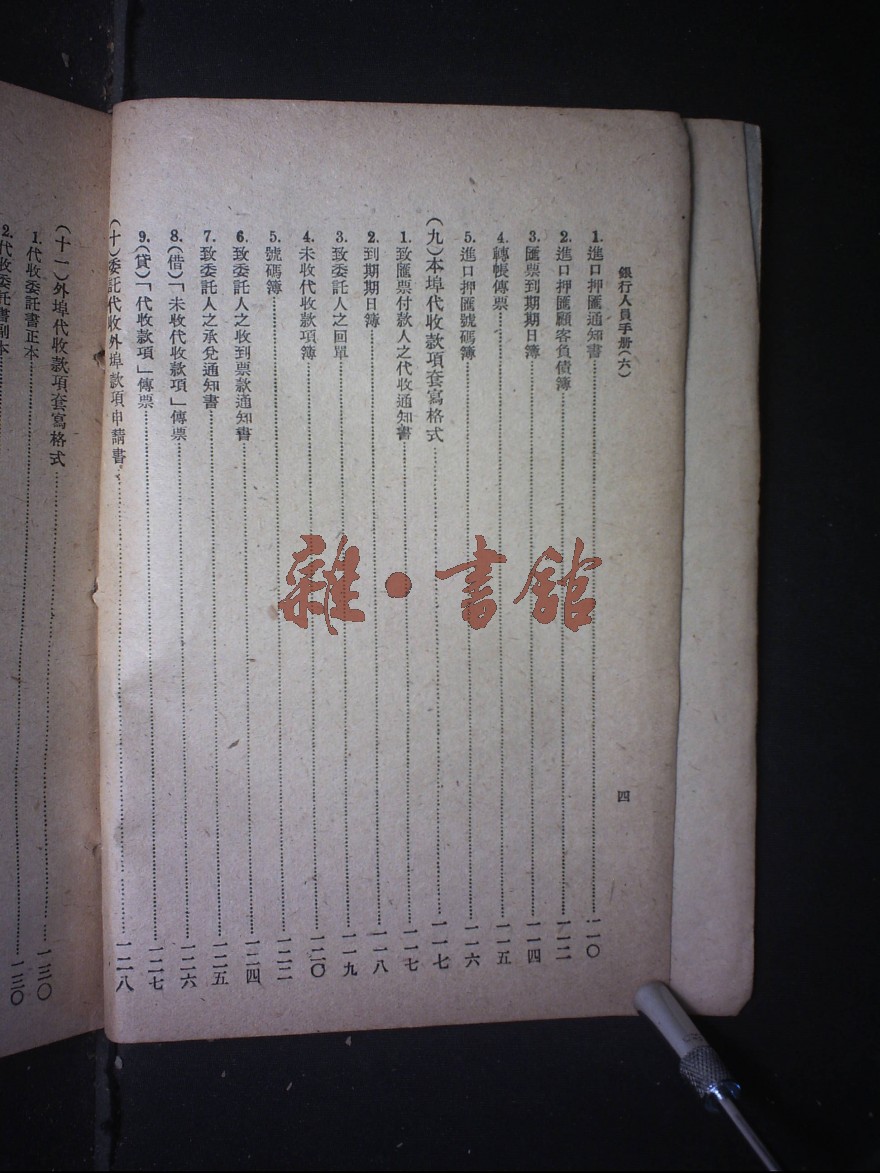 銀行人員手册(六)
四
1.進口押匯通知書……一一〇
2.進口押匯顧客負債簿……一一二
3.匯票到期期日簿……一一四
4.轉帳傳票……一一五
5.進口押匯號碼簿……一一六
(九)本埠代收款項套寫格式……一一七
1.致匯票付款人之代收通知書……一一七
2.到期期日簿……一一八
3.致委託人之回單……一一九
4.未收代收款項簿……一二〇
5.號碼簿……一二二
6.致委託人之收到票款通知書……一二四
7.致委託人之承兌通知書……一二五
8.(借)「未收代收款項」傳票……一二六
9.(貸)「代收款項」傳票……一二七
(十)委託代收外埠款項申請書……一二八
(十一)外埠代收款項套寫格式……一三〇
1.代收委託書正本……一三〇
2.代收委託書副本
雜·書館